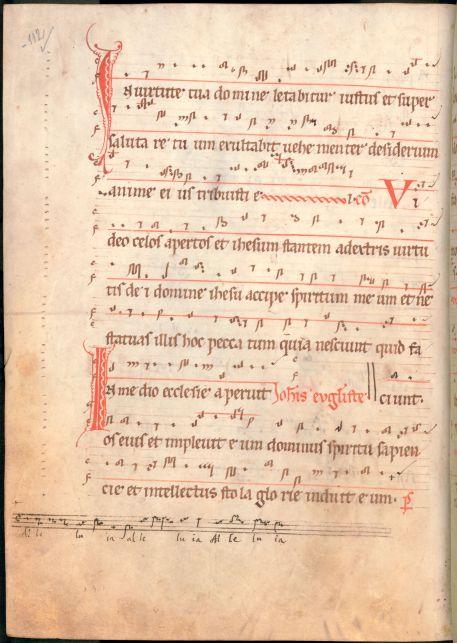 112
In virtute tua do mine letabitur iustus et super
saluta re tu um exultabit vehe menter desiderium
anime ei us tribuisti e co Vi
deo celos apertos et ihesum stantem adextris virtu
tis de i domine ihesu accipe spiritum me um et ne
statuas illis hoc pecca tum quia nesciunt quid fa
Johis evgliste ciunt.
In me dio ecclesie a peruit
os eius et impleuit e um dominus spiritu sapien
cie et intellectus sto la glo rie induit e um. P
Al le lu ia al le lu ia Al le lu ia